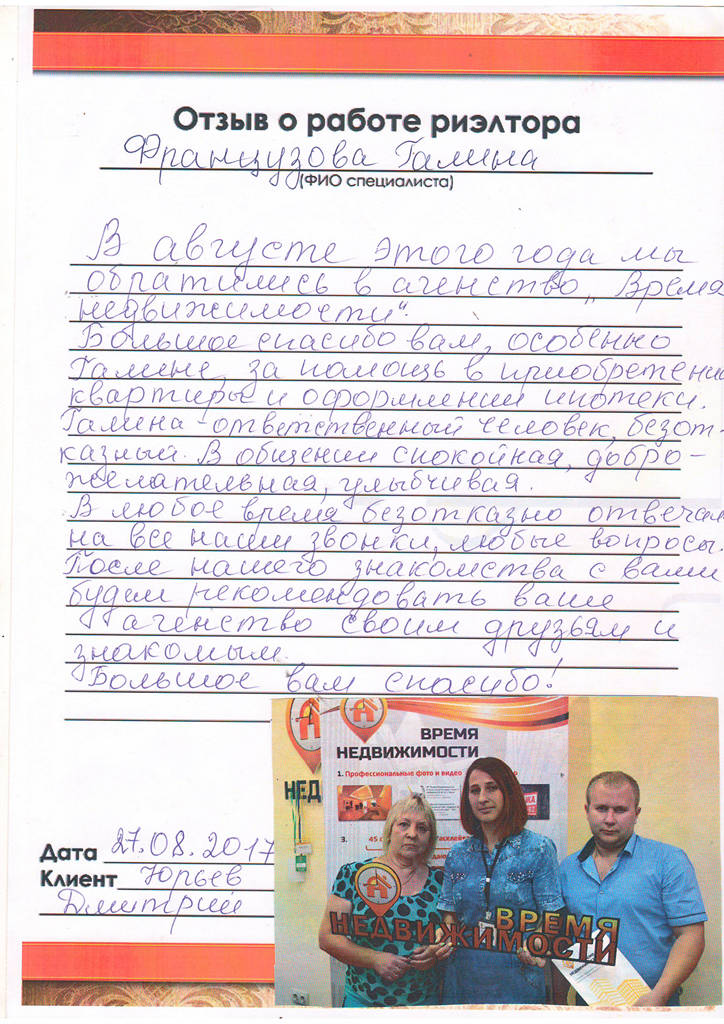 Отзыв о работе риэлтора
Французова Галина
(ФИО специалиста)
В августе этого года мы
обратились в агенство „Время
недвижимости".
Большое спасибо вам, особенно
Галине, за помощь в приобретении
квартиры и оформлении ипотеки.
Галина - ответственный человек, безот-
казный. В общении спокойная, добро-
желательная, улыбчивая.
В любое время безотказно отвечал
на все наши звонки, любые вопросы.
После нашего знакомства с вами
будем рекомендовать ваше
агенство своим друзьям и
знакомым.
Большое вам спасибо!
ВРЕМЯ
НЕДВИЖИМОСТИ
1. Профессиональные фото и видео
НЕД
3.
45
ВРЕМЯ
НЕДВИЖИМОСТИ
Дата 27.08.2017
Клиент Юрьев
Дмитрий